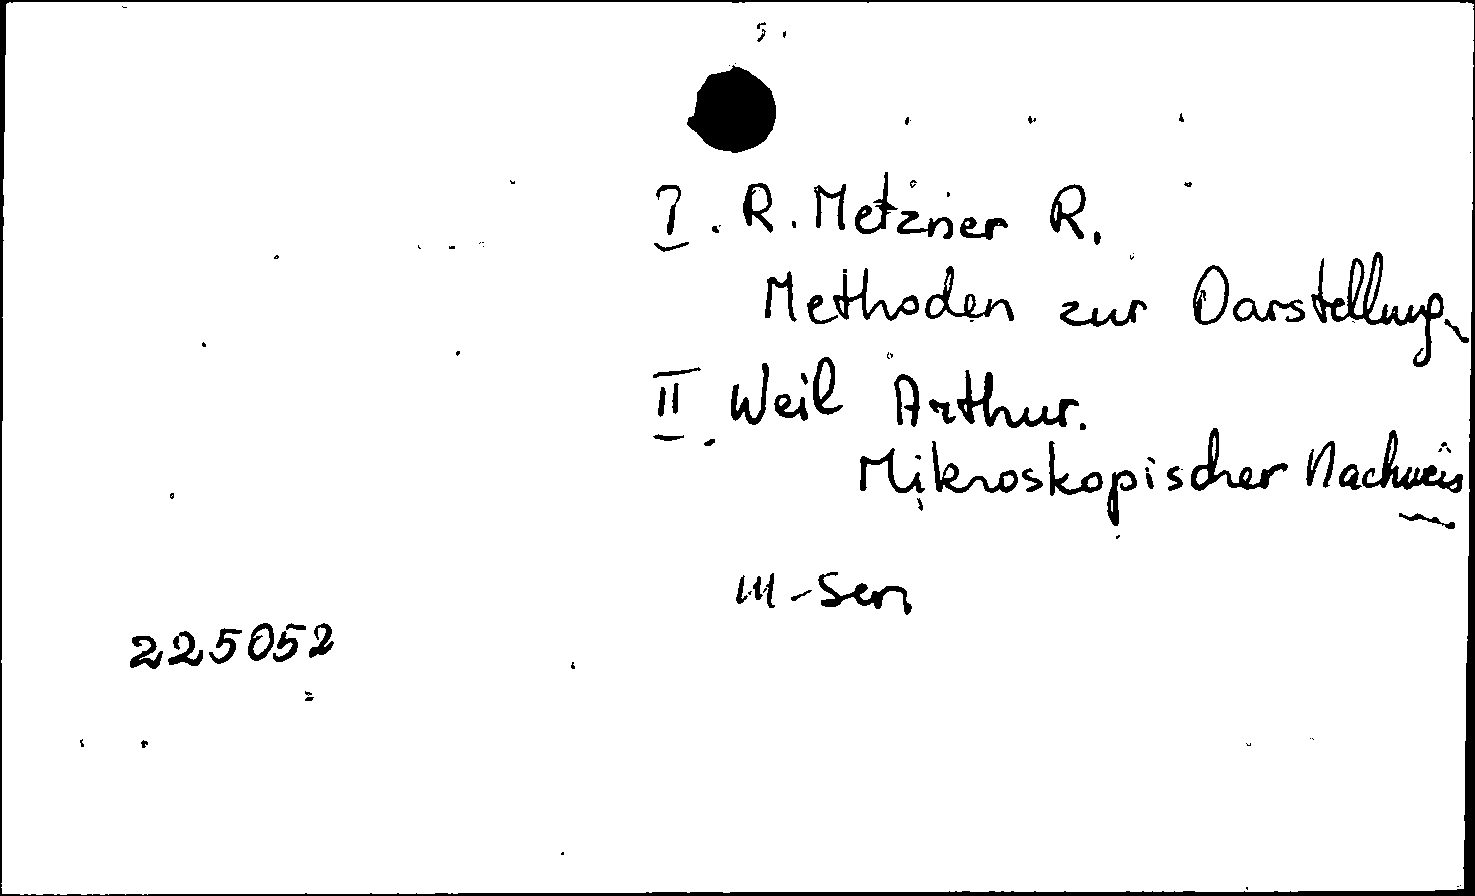 I. R. Metzner R.
Methoden zur Darstellung
II. Weil Arthur.
Mikroskopischer Nachweis
III - Seri
225052